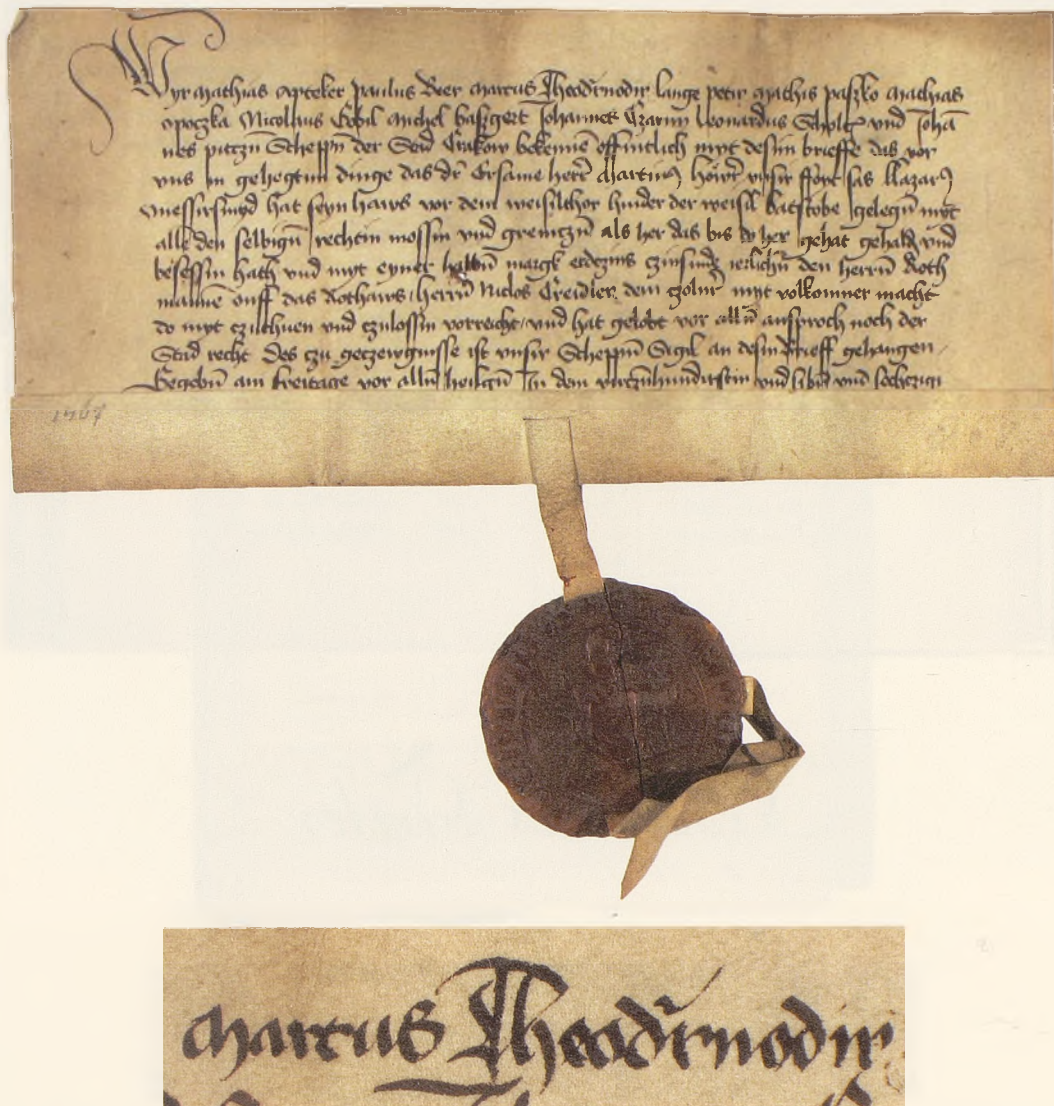 Wyr Mathias Apteker Paulus Beer Marcus Theodrnodir lange petir Mathis paszko Mathias
Opoczka Nicolaus Michel Johannes Czarny Leonardus Scholtz vnd Johā
nes pitczn̄ Scheppn̄ der Stad Crakow bekennē offintlich myt desim brieffe das vor
vns in gehegtim dinge das dr̄ Ersame herr̄ Martinus vnsir sas
hat seyn haws vor dem weisilthor hinder der weisil batstobe gelegn̄ myt
alle den selbign̄ rechtin mossin vnd grenitczn̄ als her das bis do her gehat gehaldn̄ vnd
besessin hath vnd myt eyner halbn̄ margk erdczins czinsinde ierlichn̄ den herrn̄ Roth
mannē vff das Rothaws herrn̄ Niclos Creidler dem czolnr̄ myt volkomner macht
do myt czuthuen vnd czulossin vorreicht vnd hat gelobt vor alln̄ ansproch noch der
Stad recht Des czu getzewgnisse ist vnsir Scheppn̄ Sigil an desin brieff gehangen
Gegebn̄ am freitage vor alln̄ heilgn̄ In dem vircznhunditstin vnd sibn̄ vnd sechczign
1467
Marcus Theodrnodir